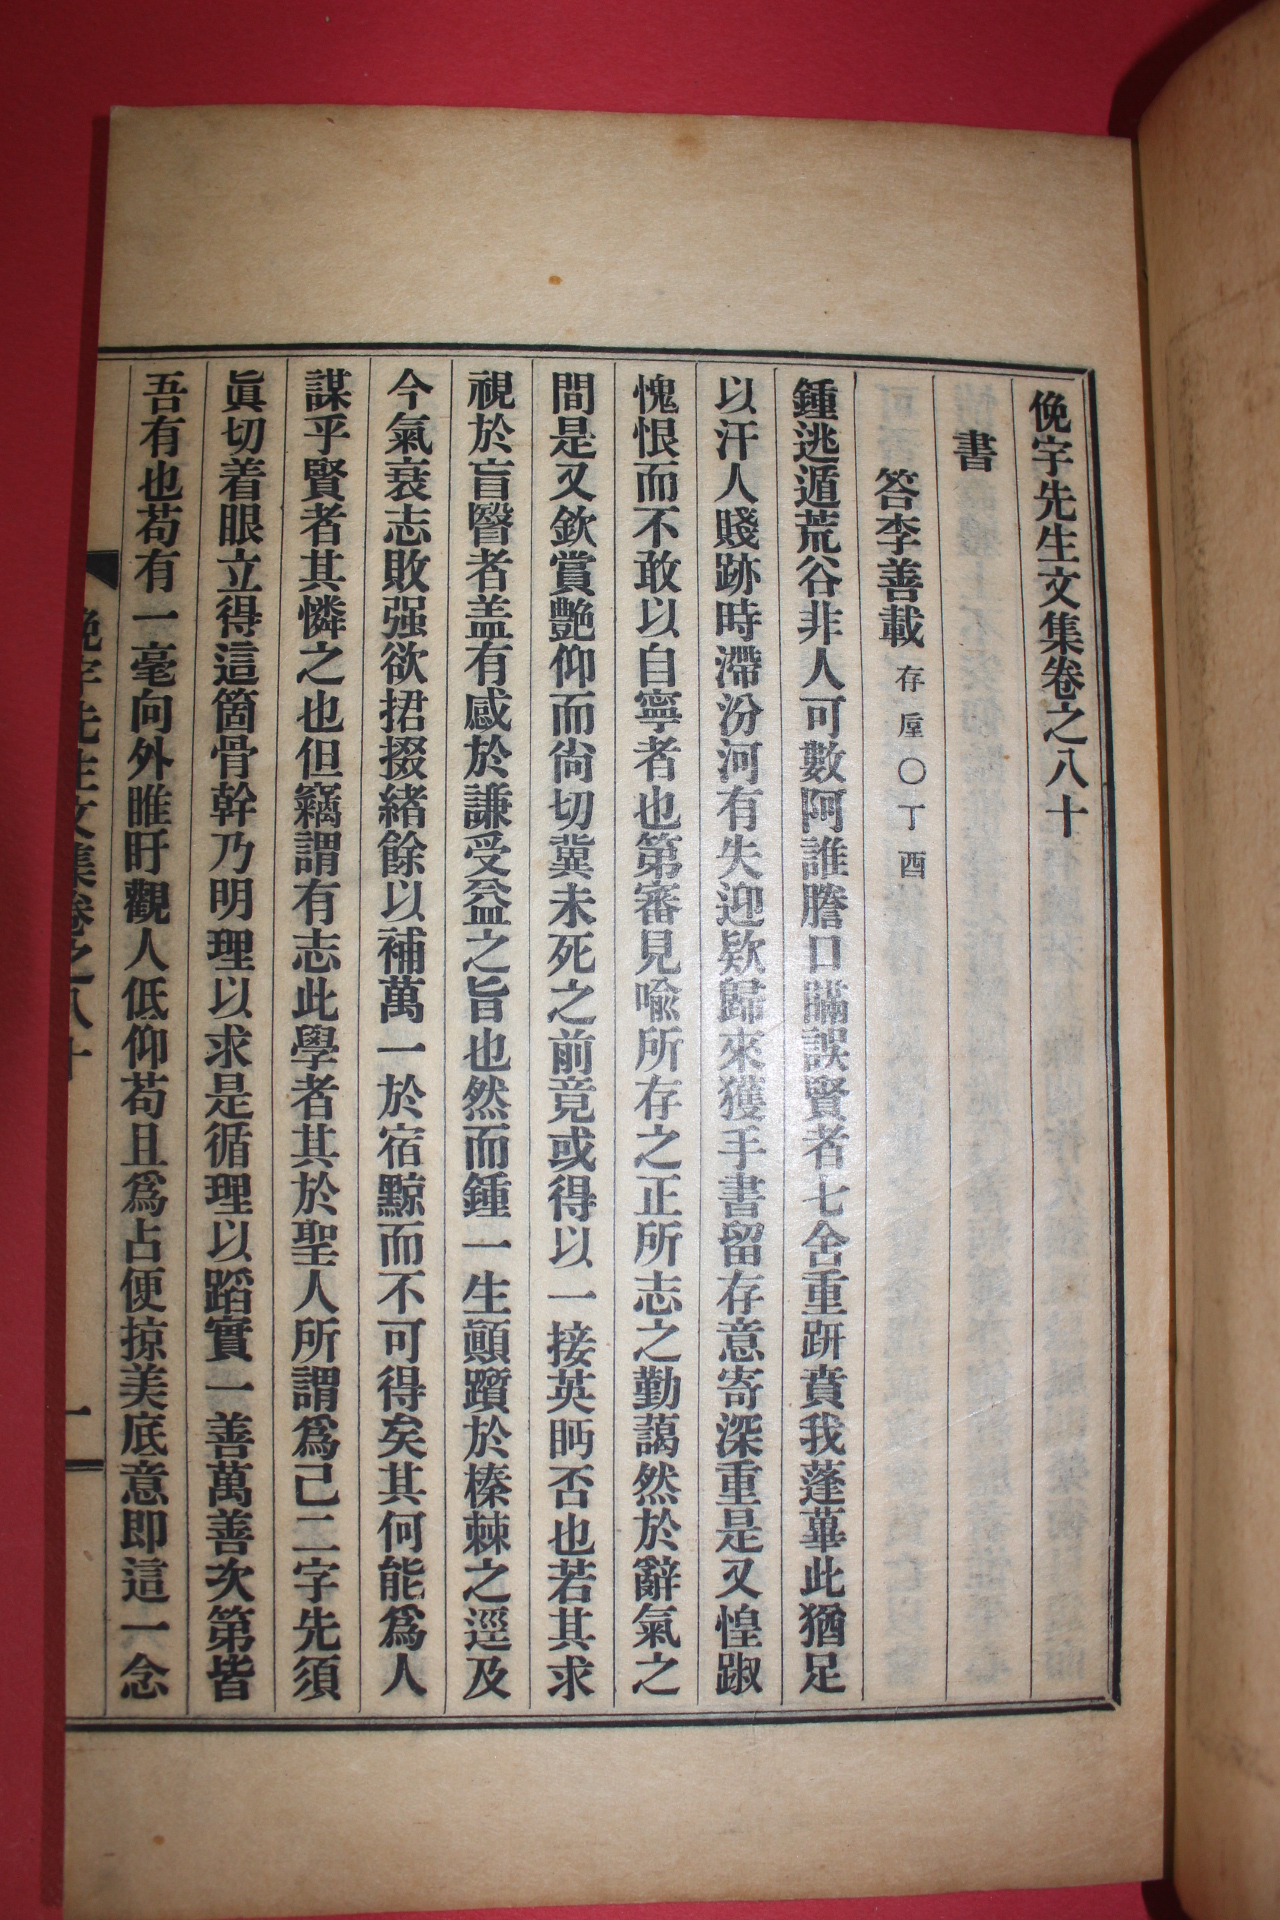 俛宇先生文集卷之八十
書
答李善載存𡊠〇丁酉
鍾逃遁荒谷非人可數阿誰謄口瞞誤賢者七舍重趼賁我蓬蓽此猶足
以汗人賤跡時滯汾河有失迎欵歸來獲手書留存意寄深重是又惶踧
愧恨而不敢以自寧者也第審見喩所存之正所志之勤藹然於辭氣之
間是又欽賞艶仰而尙切冀未死之前竟或得以一接英眄否也若其求
視於盲瞖者盖有感於謙受益之旨也然而鍾一生顚躓於榛棘之逕及
今氣衰志敗强欲捃掇緖餘以補萬一於宿黥而不可得矣其何能爲人
謀乎賢者其憐之也但竊謂有志此學者其於聖人所謂爲己二字先須
眞切着眼立得這箇骨幹乃明理以求是循理以蹈實一善萬善次第皆
吾有也苟有一毫向外睢盱觀人低仰苟且爲占便掠美底意即這一念
俛宇先生文集卷之八十
一